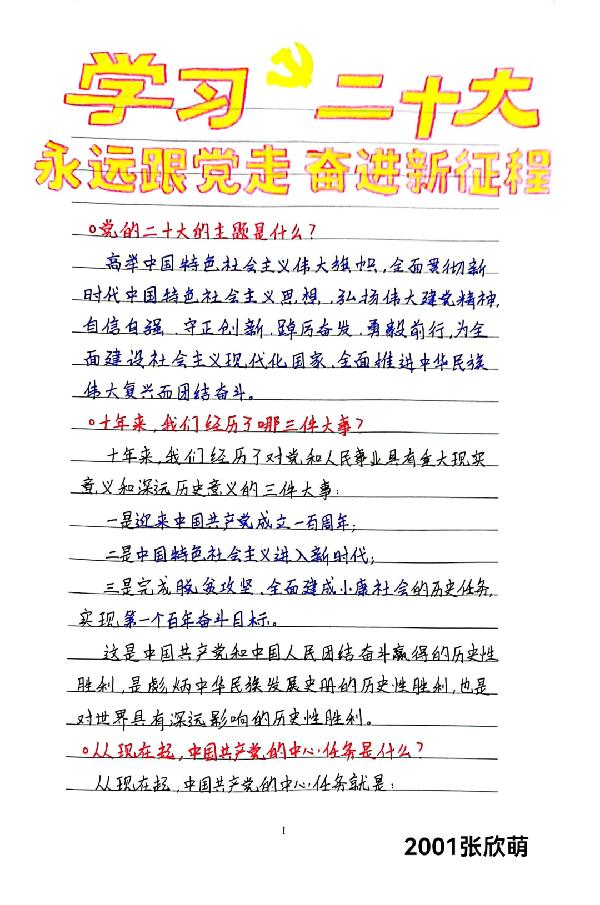 学习 二十大
永远跟党走 奋进新征程
党的二十大的主题是什么?
高举中国特色社会主义伟大旗帜,全面贯彻新
时代中国特色社会主义思想,弘扬伟大建党精神,
自信自强、守正创新,踔厉奋发、勇毅前行,为全
面建设社会主义现代化国家、全面推进中华民族
伟大复兴而团结奋斗。
十年来,我们经历了哪三件大事?
十年来,我们经历了对党和人民事业具有重大现实
意义和深远历史意义的三件大事:
一是迎来中国共产党成立一百周年;
二是中国特色社会主义进入新时代;
三是完成脱贫攻坚、全面建成小康社会的历史任务,
实现第一个百年奋斗目标。
这是中国共产党和中国人民团结奋斗赢得的历史性
胜利,是彪炳中华民族发展史册的历史性胜利,也是
对世界具有深远影响的历史性胜利。
从现在起,中国共产党的中心任务是什么?
从现在起,中国共产党的中心任务就是:
1
2001张欣萌